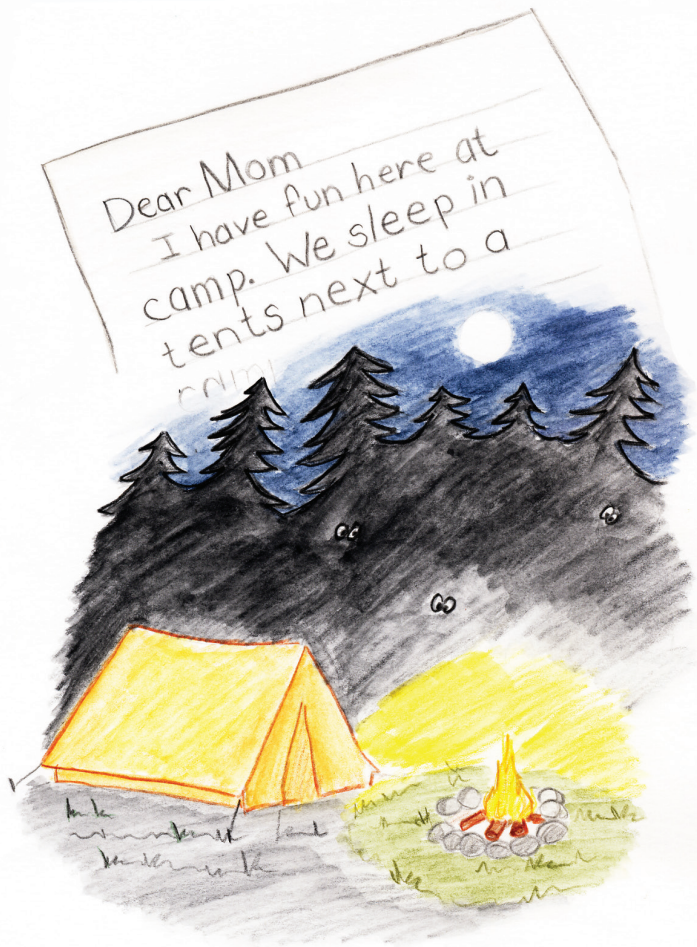 Dear Mom
I have fun here at
camp. We sleep in
tents next to a